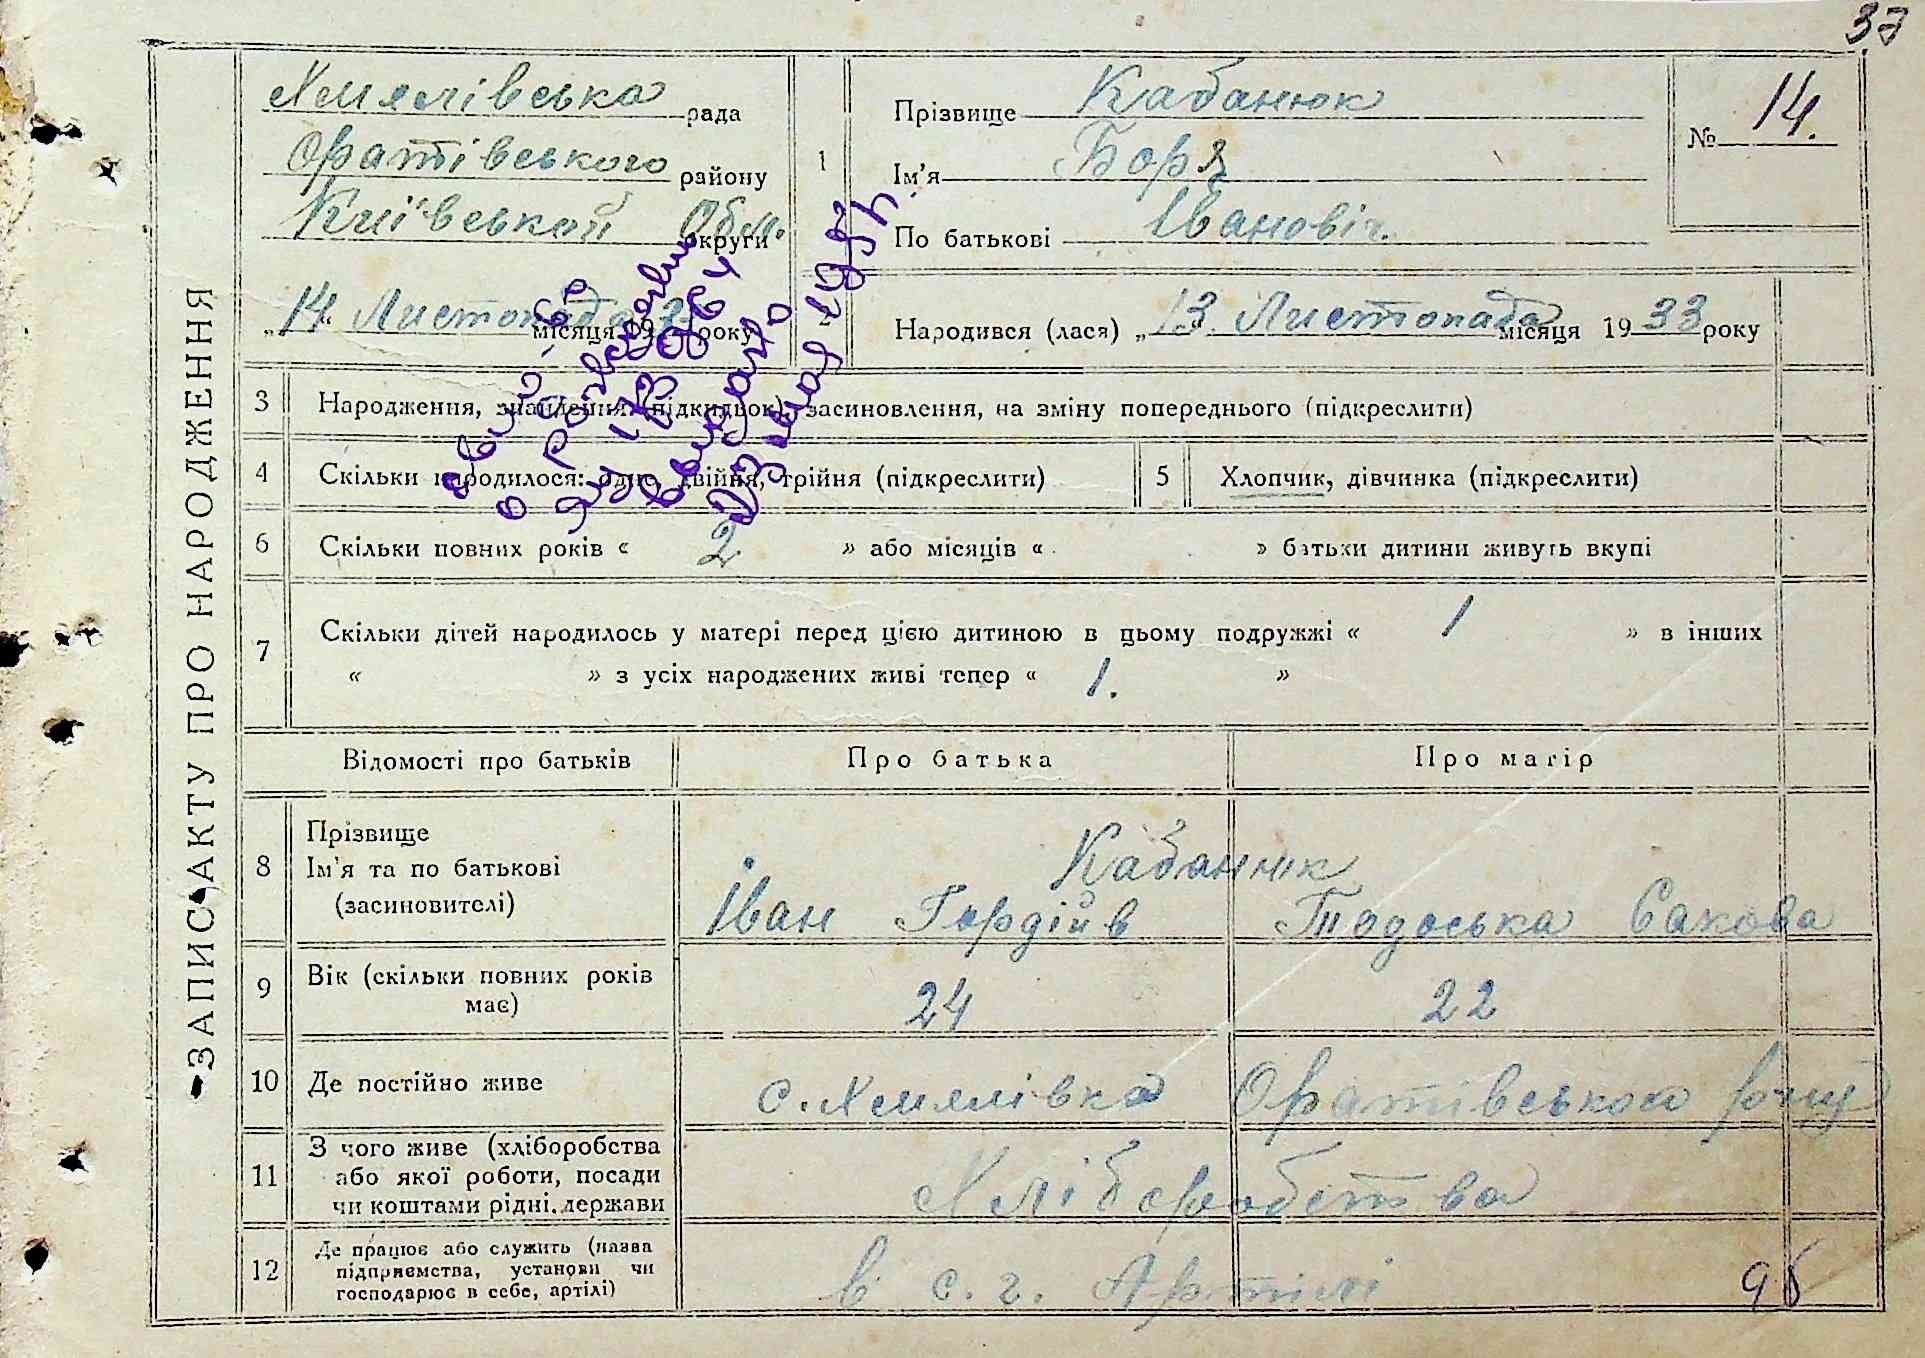 37
ЗАПИС АКТУ ПРО НАРОДЖЕННЯ
Хмялівська рада
Оратівського району
Київської Обл. округи
„14“ Листопада місяця 1933 року
1
Прізвище Кабанюк
Ім'я Боря
По батькові Івановіч.
№ 14.
2
Народився (лася) „13“ Листопада місяця 1933 року
3 Народження, знайдення (підкидьок), засиновлення, на зміну попереднього (підкреслити)
4 Скільки народилося: одне, двійня, трійня (підкреслити)
5 Хлопчик, дівчинка (підкреслити)
6 Скільки повних років « 2 » або місяців « » батьки дитини живуть вкупі
7 Скільки дітей народилось у матері перед цією дитиною в цьому подружжі « 1 » в інших
« » з усіх народжених живі тепер « 1. »
Відомості про батьків Про батька Про матір
8 Прізвище
Ім'я та по батькові
(засиновителі)
Кабанюк
Іван Гордійв Тодоська Сакова
9 Вік (скільки повних років
має)
24 22
10 Де постійно живе с. Хмялівка Оратівського
11 З чого живе (хліборобства
або якої роботи, посади
чи коштами рідні, держави
Хліборобства
12 Де працює або служить (назва
підприємства, установи чи
господарює в себе, артілі)
в с. г. Артілі